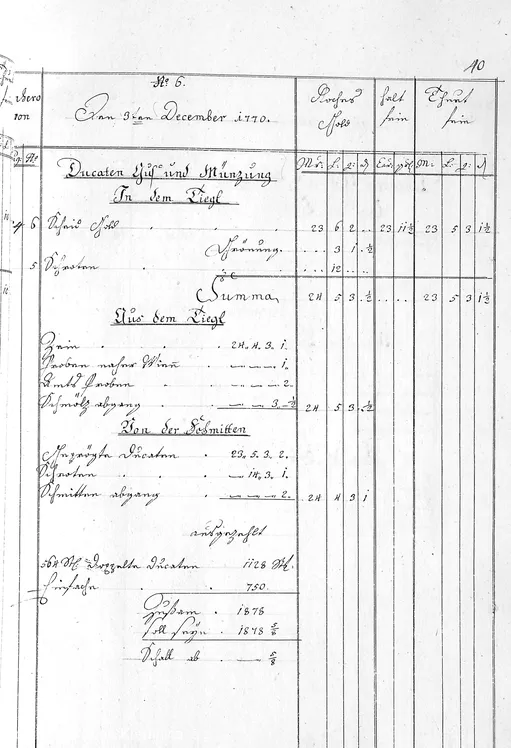 40
No 6.
Den 3ten December 1770.
Roches Gold
halt fein
Thuet fein
No Mr: L: q: d Car: M: L: q: d
Ducaten Guß und Münzung
In dem Tiegl
4 6 Scheid Gold . . . 23 6 2 .. 23 11½ 23 5 3 1½
. . . 3 1 . ½
5 Schroten . . . 12 . .
Summa 24 5 3 . ½ . . . . 23 5 3 1½
Aus dem Tiegl
Zein . . . 24. 4. 3. 1.
Proben naher Wien — — — 1.
Amts Proben . . — — — 2.
Schmölz abgang . — — 3. ½ 24 5 3 . ½
Von der Schmitten
Geprägte Ducaten . 23. 5. 3. 2.
Schroten . . . — 14. 3. 1.
Schmitten abgang . — — — 2. 24 4 3 1
ausgezehlt
564 St. Doppelte Ducaten 1128 St.
Einfache . . 750.
Zusam . 1878
soll seyn . 1878 5/8
Schall ab . — 5/8